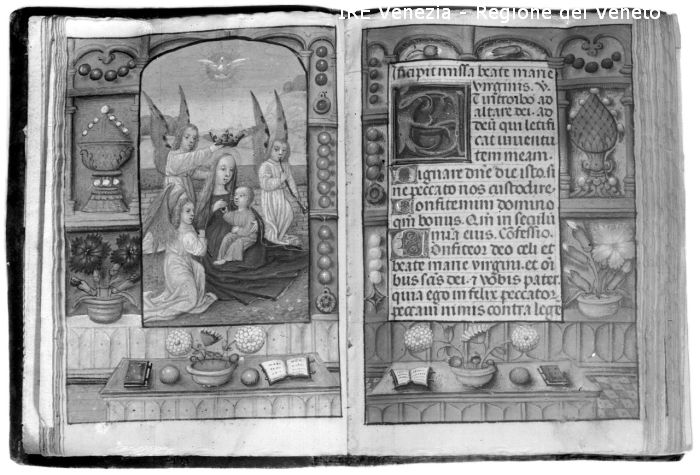 IRE Venezia - Regione del Veneto
Incipit missa beate marie
virginis. V.
Et introibo ad
altare dei. ad
deū qui letifi
cat iuuentu
tem meam.
Dignare dn̄e die isto. si
ne peccato nos custodire.
Confitemini domino
qm̄ bonus. Qm̄ in seculū
mīa eius. Cōfessio.
Confiteor deo celi et
beate marie virgini. et oī
bus sc̄is dei. ⁊ vobis pater.
quia ego infelix peccator.
peccaui nimis contra lege